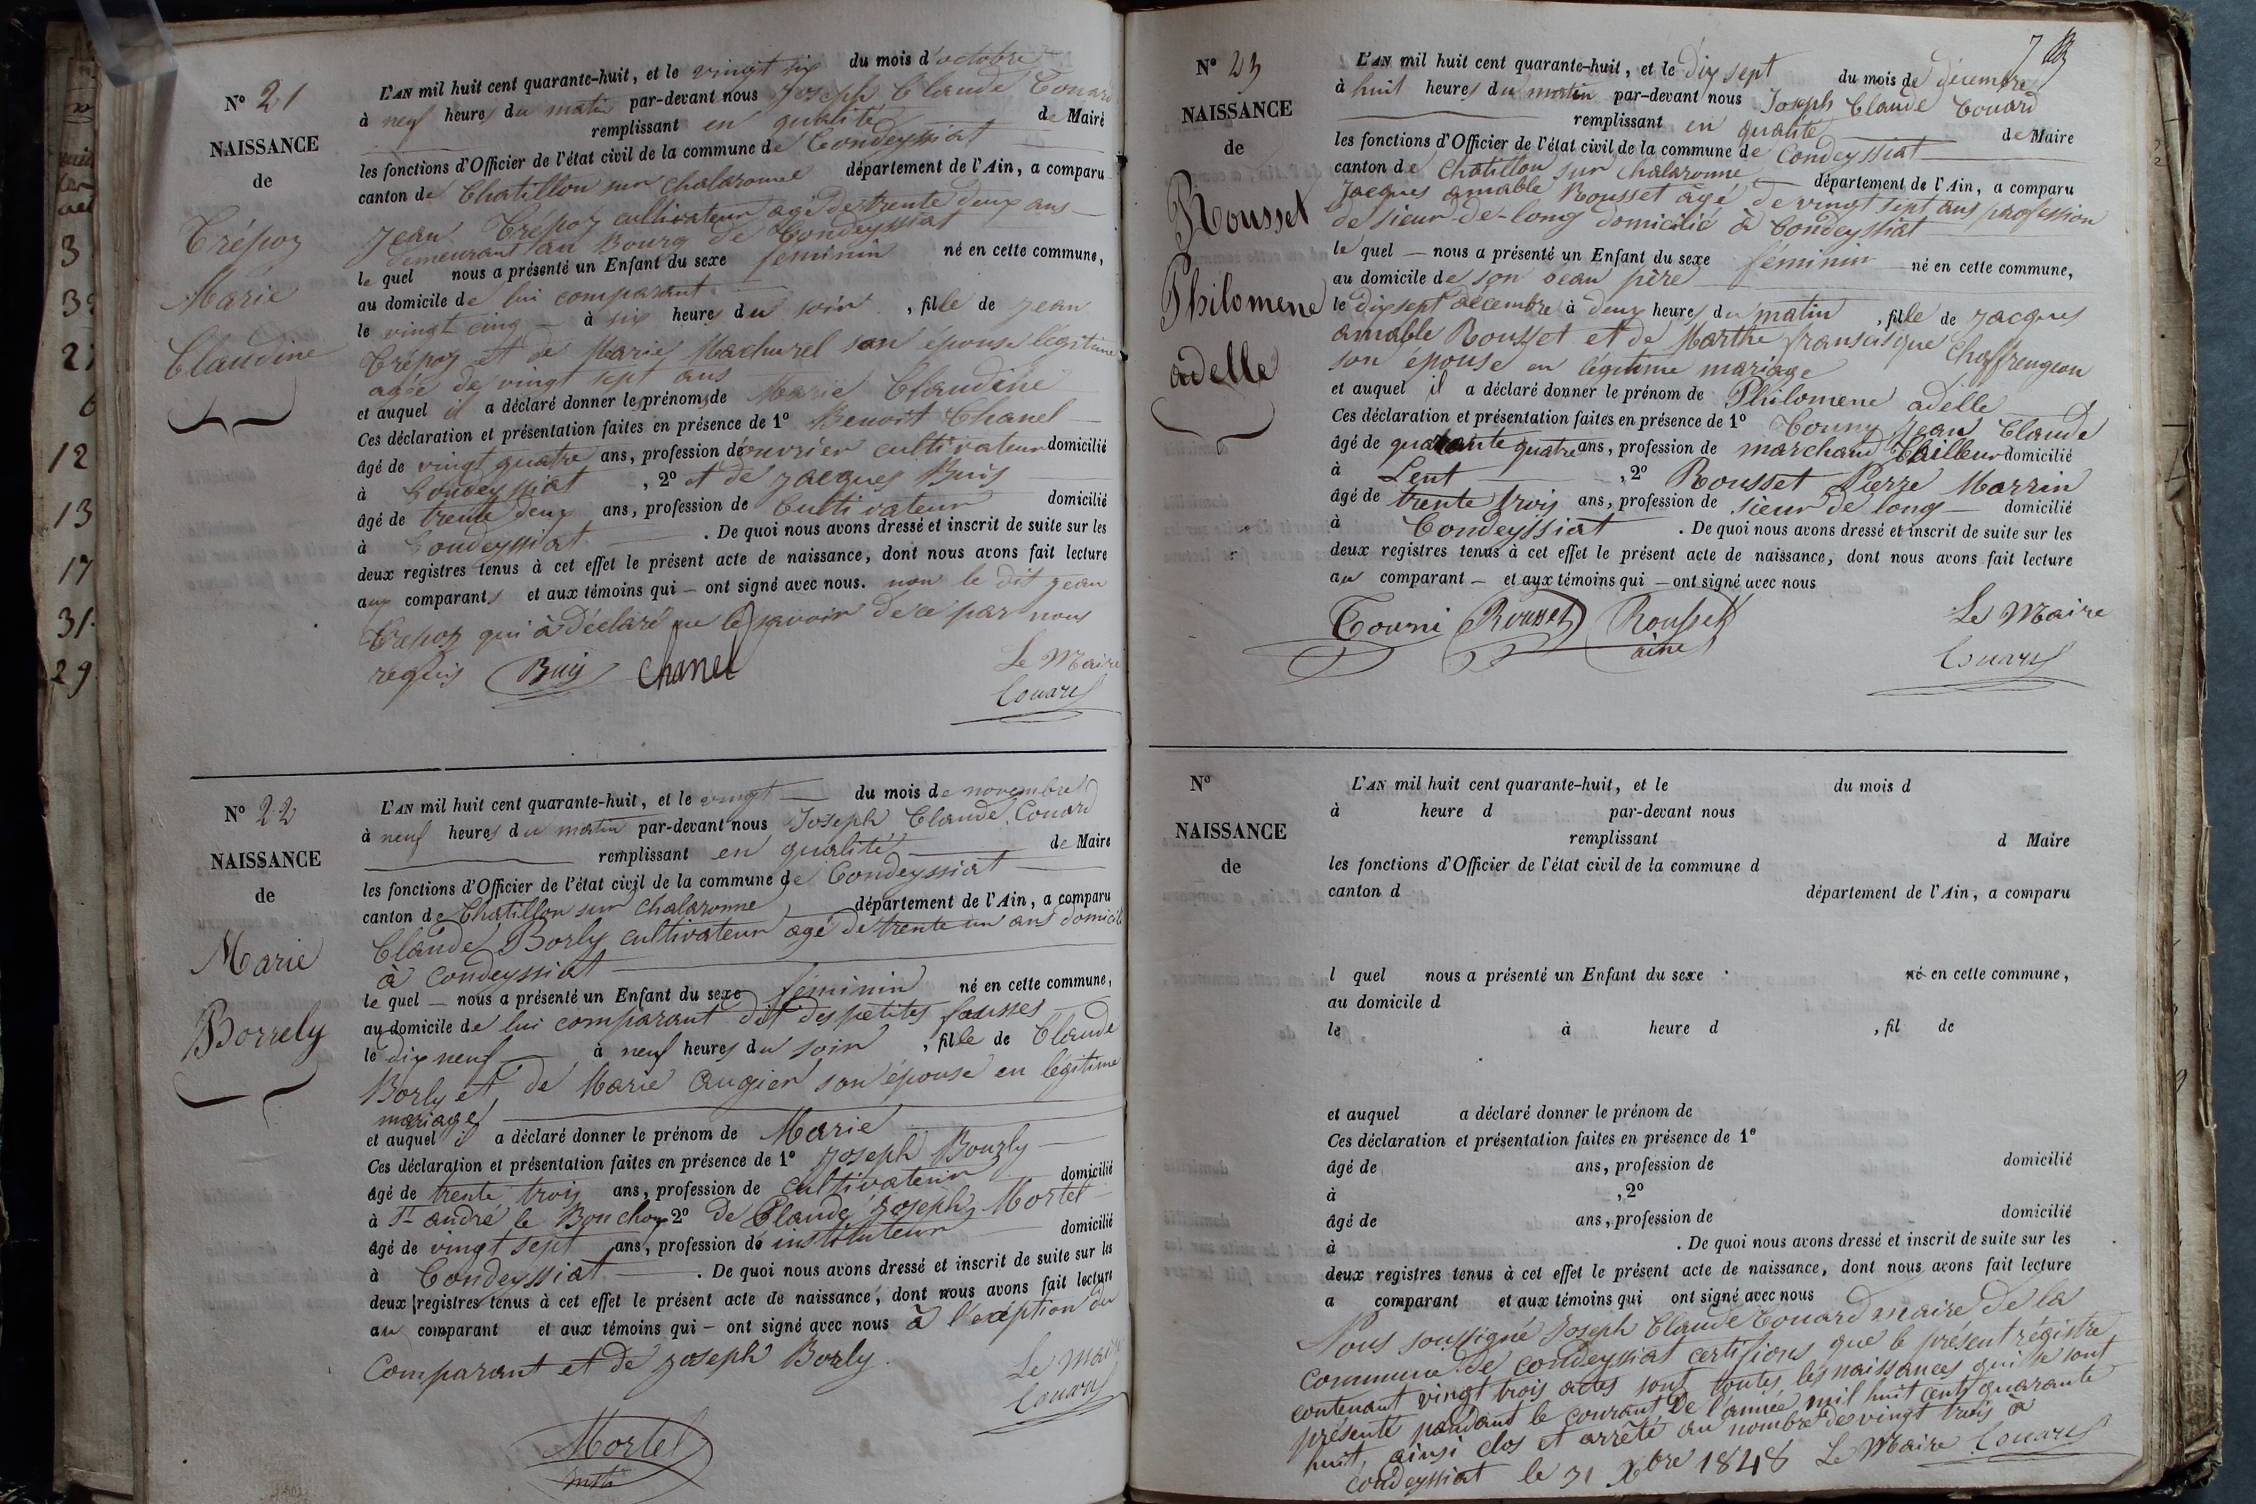 N° 21
NAISSANCE
de
Trépoz
Marie
Claudine
L'AN mil huit cent quarante-huit, et le vingt six du mois d'octobre
à neuf heures du matin par-devant nous Joseph Claude Couard
remplissant en qualité de Maire
les fonctions d'Officier de l'état civil de la commune de Condeyssiat
canton de Chatillon sur chalaronne département de l'Ain, a comparu
Jean Trépoz cultivateur agé de trente deux ans
demeurant au Bourg de Condeyssiat
le quel nous a présenté un Enfant du sexe féminin né en cette commune,
au domicile de lui comparant
le vingt cinq à six heures du soir, fille de Jean
Trépoz et de Marie Machurel son épouse légitime
agée de vingt sept ans
et auquel il a déclaré donner les prénoms de Marie Claudine
Ces déclaration et présentation faites en présence de 1° Benoit Chanel
âgé de vingt quatre ans, profession d'ouvrier cultivateur domicilié
à Condeyssiat, 2° et de Jacques Buis
âgé de trente deux ans, profession de Cultivateur domicilié
à Condeyssiat. De quoi nous avons dressé et inscrit de suite sur les
deux registres tenus à cet effet le présent acte de naissance, dont nous avons fait lecture
aux comparants et aux témoins qui – ont signé avec nous. non le dit Jean
Trepoz qui à déclaré ne le savoir de ce par nous
requis Buis Chanel Le Maire
Couard
N° 22
NAISSANCE
de
Marie
Borrely
L'AN mil huit cent quarante-huit, et le vingt du mois de novembre
à neuf heures du matin par-devant nous Joseph Claude Couard
remplissant en qualité de Maire
les fonctions d'Officier de l'état civil de la commune de Condeyssiat
canton de Chatillon sur chalaronne département de l'Ain, a comparu
Claude Borly cultivateur agé de trente un ans domicilié
à condeyssiat
le quel – nous a présenté un Enfant du sexe féminin né en cette commune,
au domicile de lui comparant dit des petites fousses
le dix neuf à neuf heures du soir, fille de Claude
Borly et de Marie Augier son épouse en légitime
mariage
et auquel il a déclaré donner le prénom de Marie
Ces déclaration et présentation faites en présence de 1° Joseph Bourly
âgé de trente trois ans, profession de cultivateur domicilié
à St andré le Bouchoux 2° de Claude Joseph Mortel
âgé de vingt sept ans, profession de instituteur domicilié
à Condeyssiat. De quoi nous avons dressé et inscrit de suite sur les
deux registres tenus à cet effet le présent acte de naissance, dont nous avons fait lecture
au comparant et aux témoins qui – ont signé avec nous à l'exéption du
Comparant et de Joseph Borly.
Le Maire
Couard
Mortel
insti
7
N° 23
NAISSANCE
de
Rousset
Philomene
adelle
L'AN mil huit cent quarante-huit, et le dix sept du mois de décembre
à huit heures du matin par-devant nous Joseph Claude Couard
remplissant en qualité de Maire
les fonctions d'Officier de l'état civil de la commune de Condeyssiat
canton de Chatillon sur Chalaronne département de l'Ain, a comparu
Jacques amable Rousset âgé de vingt sept ans profession
de sieur-de-long domicilié à Condeyssiat
le quel – nous a présenté un Enfant du sexe féminin né en cette commune,
au domicile de son beau père
le dix sept décembre à deux heures du matin, fille de Jacques
amable Rousset et de Marthe fransisque Chaffrengeon
son épouse en légitime mariage
et auquel il a déclaré donner le prénom de Philomene adelle
Ces déclaration et présentation faites en présence de 1° Tourny Jean Claude
âgé de quarante quatre ans, profession de marchand Tailleur domicilié
à Lent, 2° Rousset Pierre Marrin
âgé de trente trois ans, profession de sieur de long domicilié
à Condeyssiat. De quoi nous avons dressé et inscrit de suite sur les
deux registres tenus à cet effet le présent acte de naissance, dont nous avons fait lecture
au comparant – et aux témoins qui – ont signé avec nous
Tourni Rousset Rousset Le Maire
ainé Couard
N°
NAISSANCE
de
L'AN mil huit cent quarante-huit, et le du mois d
à heure d par-devant nous
remplissant d Maire
les fonctions d'Officier de l'état civil de la commune d
canton d département de l'Ain, a comparu
l quel nous a présenté un Enfant du sexe né en cette commune,
au domicile d
le à heure d, fil de
et auquel a déclaré donner le prénom de
Ces déclaration et présentation faites en présence de 1°
âgé de ans, profession de domicilié
à, 2°
âgé de ans, profession de domicilié
à. De quoi nous avons dressé et inscrit de suite sur les
deux registres tenus à cet effet le présent acte de naissance, dont nous avons fait lecture
a comparant et aux témoins qui ont signé avec nous
Nous soussigné Joseph Claude Couard maire de la
commune de condeyssiat certifions que le présent régistre
contenant vingt trois actes sont toutes les naissances qui se sont
présenté pendant le courant de l'année mil huit cent quarante
huit, ainsi clos et arrêté au nombre de vingt trois à
condeyssiat le 31 Xbre 1848 Le Maire Couard
3
2
6
12
13
17
31.
29